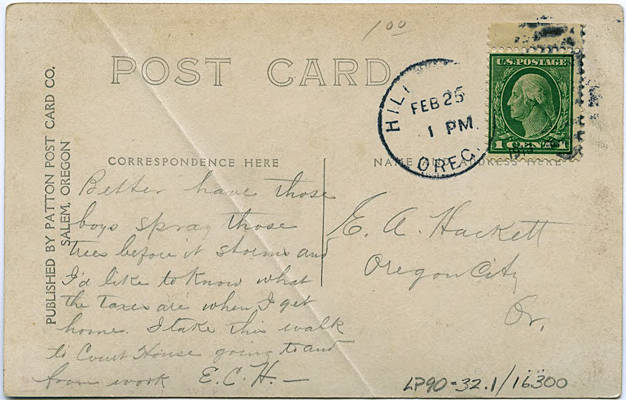 1.00
POST CARD
U.S. POSTAGE
1 CENT 1
HIL
FEB 25
1 PM.
OREG.
CORRESPONDENCE HERE
NAME AND ADDRESS HERE
PUBLISHED BY PATTON POST CARD CO.
SALEM, OREGON
Better have those
boys spray those
trees before it storms and
I'd like to know what
the taxes are when I get
home. I take this walk
to Court House going to and
from work E.C.H.—
E. A. Hackett
Oregon City
Or.
LP90-32.1/16300